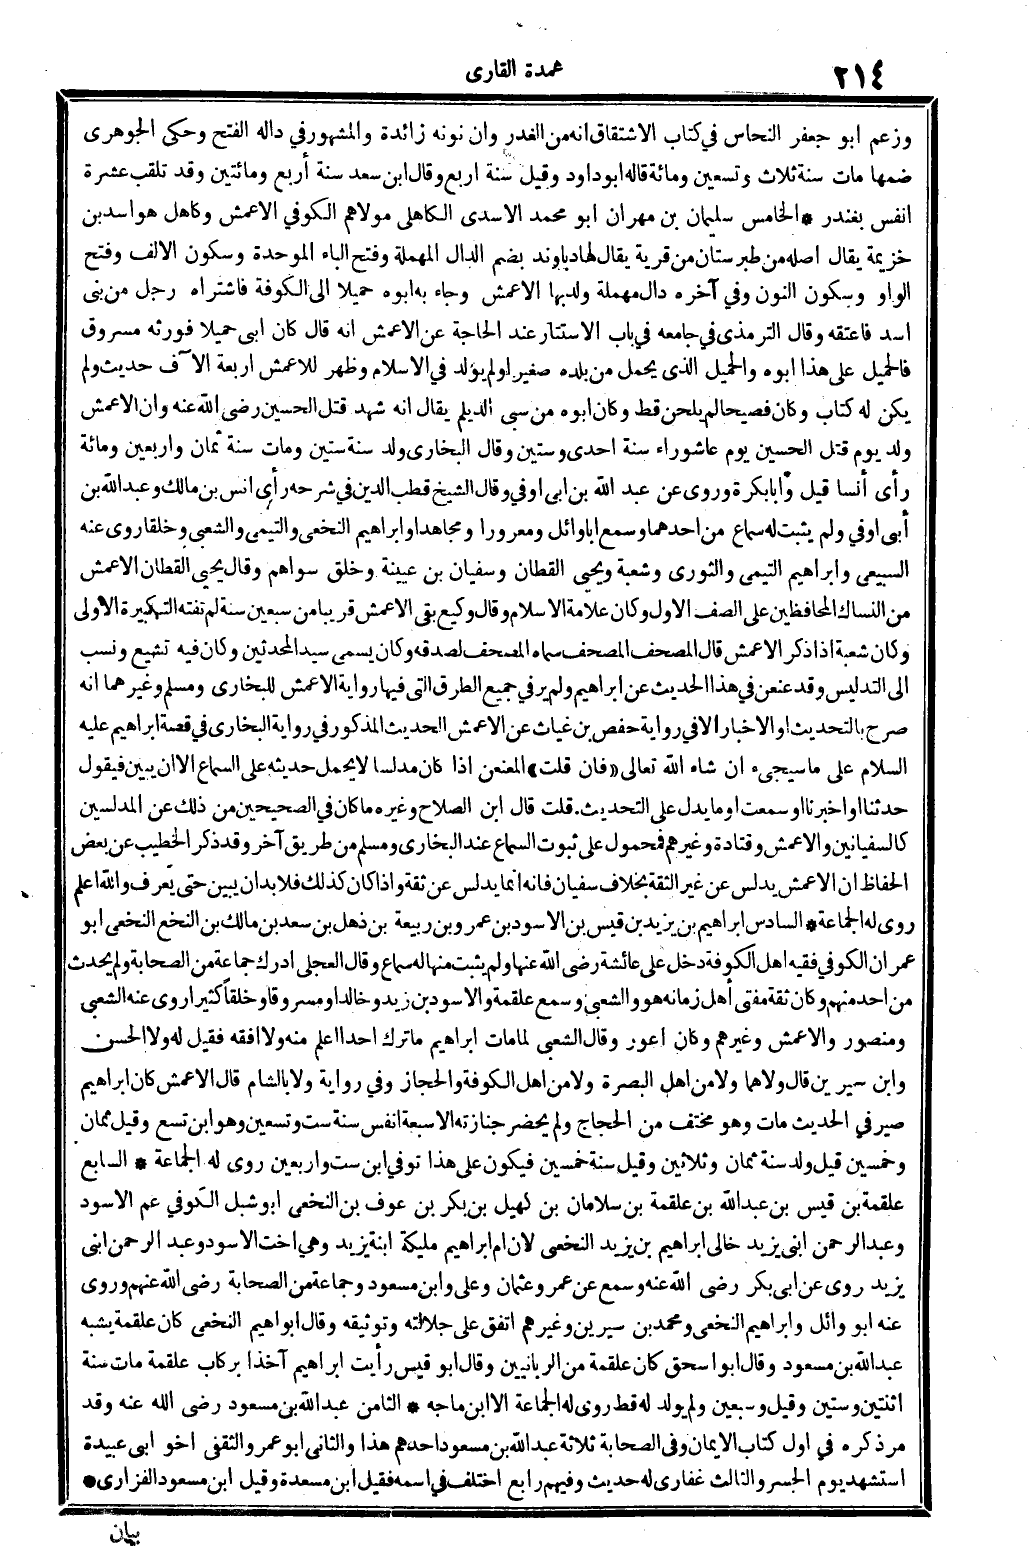 ٢١٤
عمدة القارى
وزعم ابو جعفر النحاس في كتاب الاشتقاق انه من الغدر وان نونه زائدة والمشهور في داله الفتح وحكى الجوهرى
ضمها مات سنة ثلاث وتسعين ومائة قاله ابو داود وقيل سنة اربع وقال ابن سعد سنة أربع ومائتين وقد تلقب عشرة
انفس بغندر * الخامس سليمان بن مهران ابو محمد الاسدى الكاهلى مولاهم الكوفي الاعمش وكاهل هو اسد بن
خزيمة يقال اصله من طبرستان من قرية يقال لها دباوند بضم الدال المهملة وفتح الباء الموحدة وسكون الالف وفتح
الواو وسكون النون وفي آخره دال مهملة ولد بها الاعمش وجاء به ابوه حميلا الى الكوفة فاشتراه رجل من بنى
اسد فاعتقه وقال الترمذى في جامعه في باب الاستتار عند الحاجة عن الاعمش انه قال كان ابى حميلا فورثه مسروق
فالحميل على هذا ابوه والحميل الذى يحمل من بلده صغيرا ولم يولد في الاسلام وظهر للاعمش اربعة الآف حديث ولم
يكن له كتاب وكان فصيحا لم يلحن قط وكان ابوه من سبى الديلم يقال انه شهد قتل الحسين رضى الله عنه وان الاعمش
ولد يوم قتل الحسين يوم عاشوراء سنة احدى وستين وقال البخارى ولد سنة ستين ومات سنة ثمان واربعين ومائة
رأى أنسا قيل وأبا بكرة وروى عن عبد الله بن ابى اوفي وقال الشيخ قطب الدين في شرحه رأى انس بن مالك وعبد الله بن
أبى اوفي ولم يثبت له سماع من احدهما وسمع ابا وائل ومعرورا ومجاهدا وابراهيم النخعى والتيمى والشعبى وخلقا روى عنه
السبيعى وابراهيم التيمى والثورى وشعبة ويحيى القطان وسفيان بن عيينة وخلق سواهم وقال يحيى القطان الاعمش
من النساك المحافظين على الصف الاول وكان علامة الاسلام وقال وكيع بقى الاعمش قريبا من سبعين سنة لم تفته التكبيرة الاولى
وكان شعبة اذا ذكر الاعمش قال المصحف المصحف سماه المصحف لصدقه وكان يسمى سيد المحدثين وكان فيه تشيع ونسب
الى التدليس وقد عنعن في هذا الحديث عن ابراهيم ولم ير في جميع الطرق التى فيها رواية الاعمش للبخارى ومسلم وغيرهما انه
صرح بالتحديث او الاخبار الا في رواية حفص بن غياث عن الاعمش الحديث المذكور في رواية البخارى في قصة ابراهيم عليه
السلام على ما سيجىء ان شاء الله تعالى (فان قلت) المعنعن اذا كان مدلسا لا يحمل حديثه على السماع الا ان يبين فيقول
حدثنا او اخبرنا او سمعت او ما يدل على التحديث. قلت قال ابن الصلاح وغيره ما كان في الصحيحين من ذلك عن المدلسين
كالسفيانين والاعمش وقتادة وغيرهم فمحمول على ثبوت السماع عند البخارى ومسلم من طريق آخر وقد ذكر الخطيب عن بعض
الحفاظ ان الاعمش يدلس عن غير الثقة بخلاف سفيان فانه انما يدلس عن ثقة واذا كان كذلك فلا بد ان يبين حتى يعرف والله اعلم
روى له الجماعة * السادس ابراهيم بن يزيد بن قيس بن الاسود بن عمرو بن ربيعة بن ذهل بن سعد بن مالك بن النخع النخعى ابو
عمران الكوفي فقيه اهل الكوفة دخل على عائشة رضى الله عنها ولم يثبت منها له سماع وقال العجلى ادرك جماعة من الصحابة ولم يحدث
من احد منهم وكان ثقة مفتى أهل زمانه هو والشعبى وسمع علقمة والاسود بن زيد وخالدا ومسروقا وخلقا كثيرا روى عنه الشعبى
ومنصور والاعمش وغيرهم وكان اعور وقال الشعبى لما مات ابراهيم ما ترك احدا اعلم منه ولا افقه فقيل له ولا الحسن
وابن سيرين قال ولاهما ولا من اهل البصرة ولا من اهل الكوفة والحجاز وفي رواية ولا بالشام قال الاعمش كان ابراهيم
صير في الحديث مات وهو مختف من الحجاج ولم يحضر جنازته الا سبعة انفس سنة ست وتسعين وهو ابن تسع وقيل ثمان
وخمسين قيل ولد سنة ثمان وثلاثين وقيل سنة خمسين فيكون على هذا توفي ابن ست واربعين روى له الجماعة * السابع
علقمة بن قيس بن عبد الله بن علقمة بن سلامان بن لهيل بن بكر بن عوف بن النخعى ابو شبل الكوفي عم الاسود
وعبد الرحمن ابنى يزيد خالى ابراهيم بن يزيد النخعى لان ام ابراهيم مليكة ابنة يزيد وهي اخت الاسود وعبد الرحمن ابنى
يزيد روى عن ابى بكر رضى الله عنه وسمع عن عمر وعثمان وعلى وابن مسعود وجماعة من الصحابة رضى الله عنهم وروى
عنه ابو وائل وابراهيم النخعى ومحمد بن سيرين وغيرهم اتفق على جلالته وتوثيقه وقال ابواهيم النخعى كان علقمة يشبه
عبد الله بن مسعود وقال ابو اسحق كان علقمة من الربانيين وقال ابو قيس رأيت ابراهيم آخذا بركاب علقمة مات سنة
اثنتين وستين وقيل وسبعين ولم يولد له قط روى له الجماعة الا ابن ماجه * الثامن عبد الله بن مسعود رضى الله عنه وقد
مر ذكره في اول كتاب الايمان وفي الصحابة ثلاثة عبد الله بن مسعود احدهم هذا والثانى ابو عمرو الثقفى اخو ابى عبيدة
استشهد يوم الجسر والثالث غفارى له حديث وفيهم رابع اختلف في اسمه فقيل ابن مسعدة وقيل ابن مسعود الفزارى *
بيان